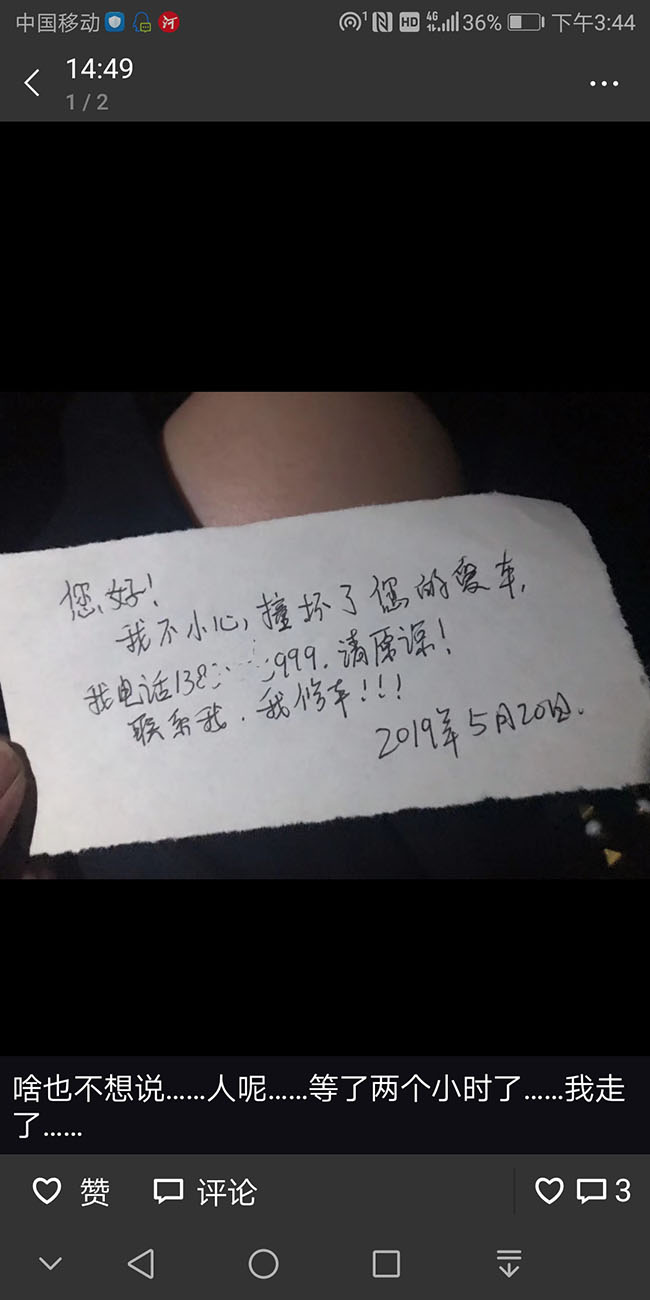 中国移动 HD 4G 36% 下午3:44
14:49
1 / 2
您好!
我不小心,撞坏了您的爱车,
我电话138 999.请原谅!
联系我.我修车!!!
2019年5月20日.
啥也不想说……人呢……等了两个小时了……我走
了……
赞 评论 3